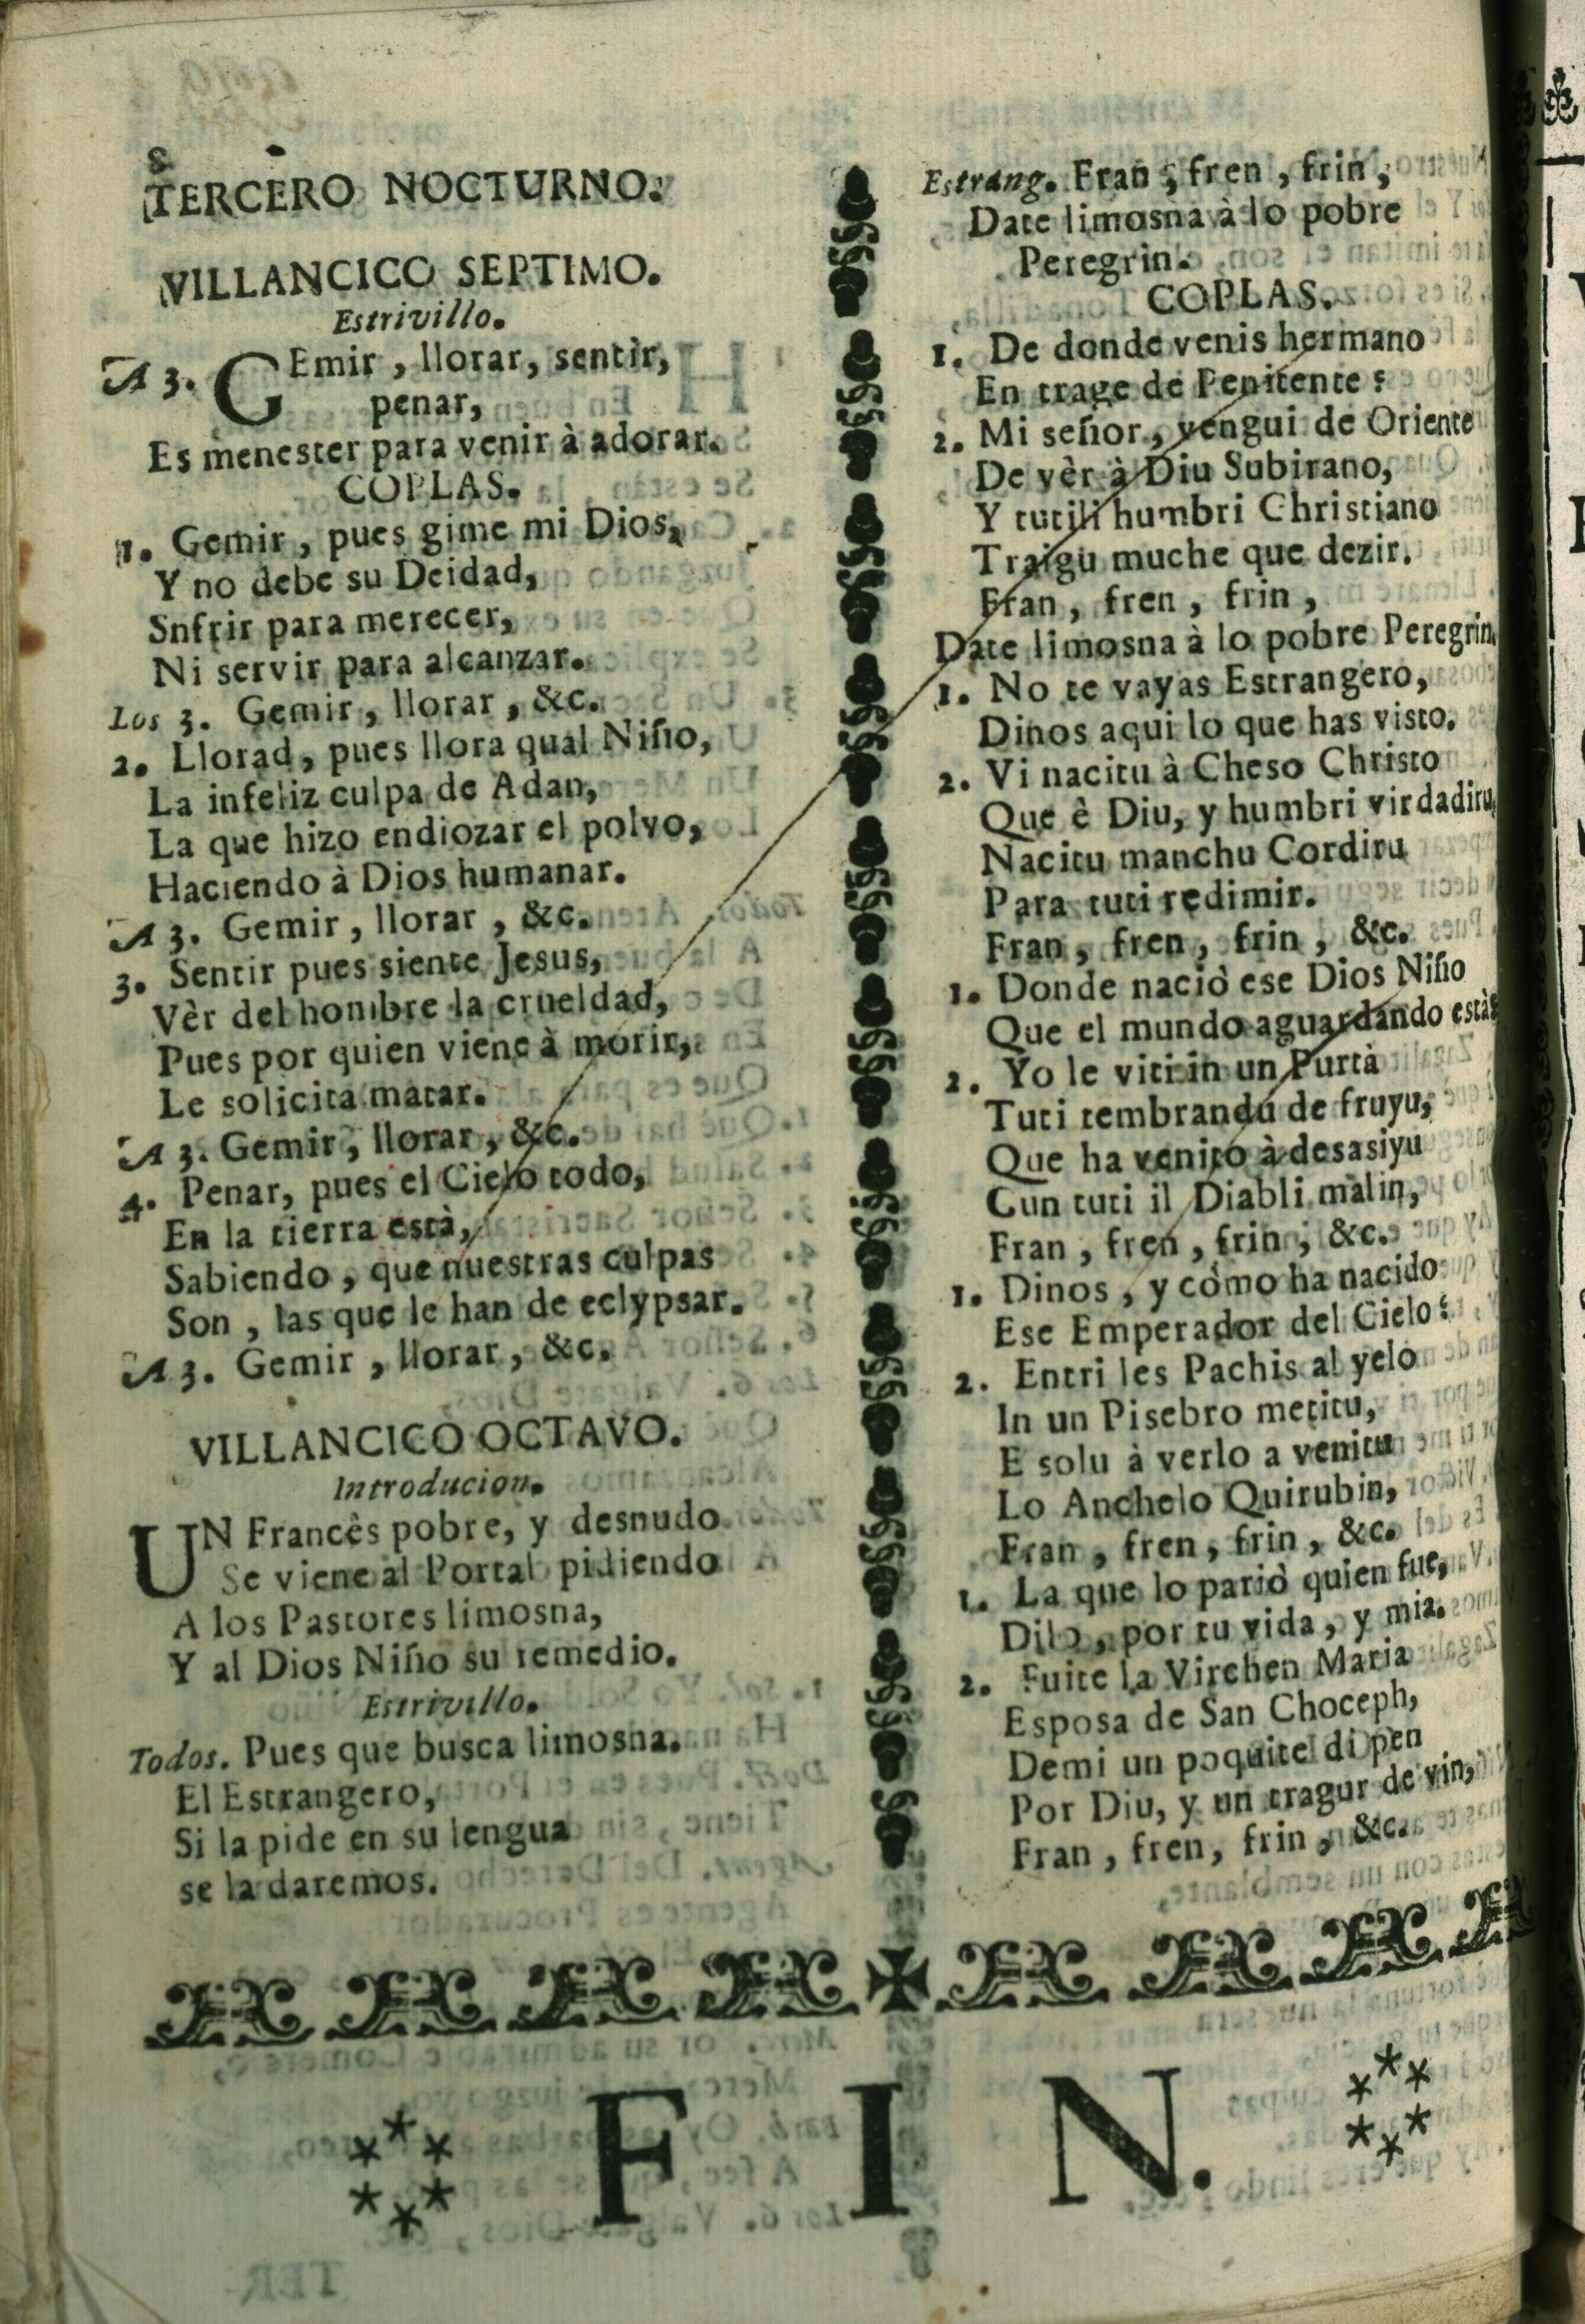 8
TERCERO NOCTURNO.
VILLANCICO SEPTIMO.
Estrivillo.
A 3. GEmir, llorar, sentir,
penar,
Es menester para venir à adorar.
COPLAS.
1. Gemir, pues gime mi Dios,
Y no debe su Deidad,
Snfrir para merecer,
Ni servir para alcanzar.
Los 3. Gemir, llorar, &c.
2. Llorad, pues llora qual Niño,
La infeliz culpa de Adan,
La que hizo endiozar el polvo,
Haciendo à Dios humanar.
A 3. Gemir, llorar, &c.
3. Sentir pues siente Jesus,
Vèr del hombre la crueldad,
Pues por quien viene à morir,
Le solicita matar.
A 3. Gemir, llorar, &c.
4. Penar, pues el Cielo todo,
En la tierra està,
Sabiendo, que nuestras culpas
Son, las que le han de eclypsar.
A 3. Gemir, llorar, &c.
VILLANCICO OCTAVO.
Introducion.
UN Francès pobre, y desnudo
Se viene al Portal pidiendo
A los Pastores limosna,
Y al Dios Niño su remedio.
Estrivillo.
Todos. Pues que busca limosna.
El Estrangero,
Si la pide en su lengua
se la daremos.
Estrang. Fran, fren, frin,
Date limosna à lo pobre
Peregrin.
COPLAS.
1. De donde venis hermano
En trage de Penitente?
2. Mi señor, vengui de Oriente
De vèr à Diu Subirano,
Y tutili humbri Christiano
Traigu muche que dezir.
Fran, fren, frin,
Date limosna à lo pobre Peregrin.
1. No te vayas Estrangero,
Dinos aqui lo que has visto.
2. Vi nacitu à Cheso Christo
Que è Diu, y humbri virdadiru,
Nacitu manchu Cordiru
Para tuti redimir.
Fran, fren, frin, &c.
1. Donde naciò ese Dios Niño
Que el mundo aguardando està?
2. Yo le viti in un Purtà
Tuti tembrandu de fruyu,
Que ha venito à desasiyu
Cun tuti il Diabli malin,
Fran, fren, frin, &c.
1. Dinos, y còmo ha nacido
Ese Emperador del Cielo?
2. Entri les Pachis al yelo
In un Pisebro metitu,
E solu à verlo a venitu
Lo Anchelo Quirubin,
Fran, fren, frin, &c.
1. La que lo pariò quien fue,
Dilo, por tu vida, y mia.
2. Fuite la Virchen Maria
Esposa de San Choceph,
Demi un poquite di pen
Por Diu, y un tragur de vin,
Fran, fren, frin, &c.
FIN.